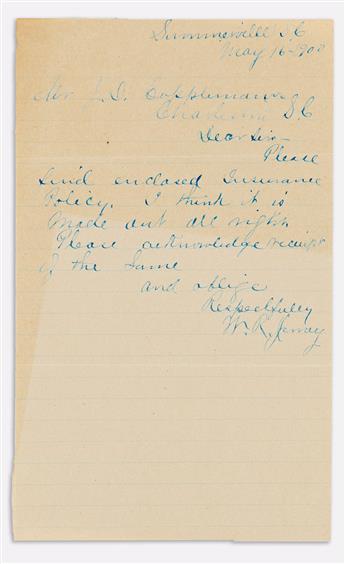 Summerville S.C
May 16-1900
Mr J.D. Cappelmann
Charleston S.C
Dear Sir
Please
find enclosed Insurance
Policy. I think it is
made out all right
Please acknowledge receipt
of the same
and oblige
Respectfully
W. R.